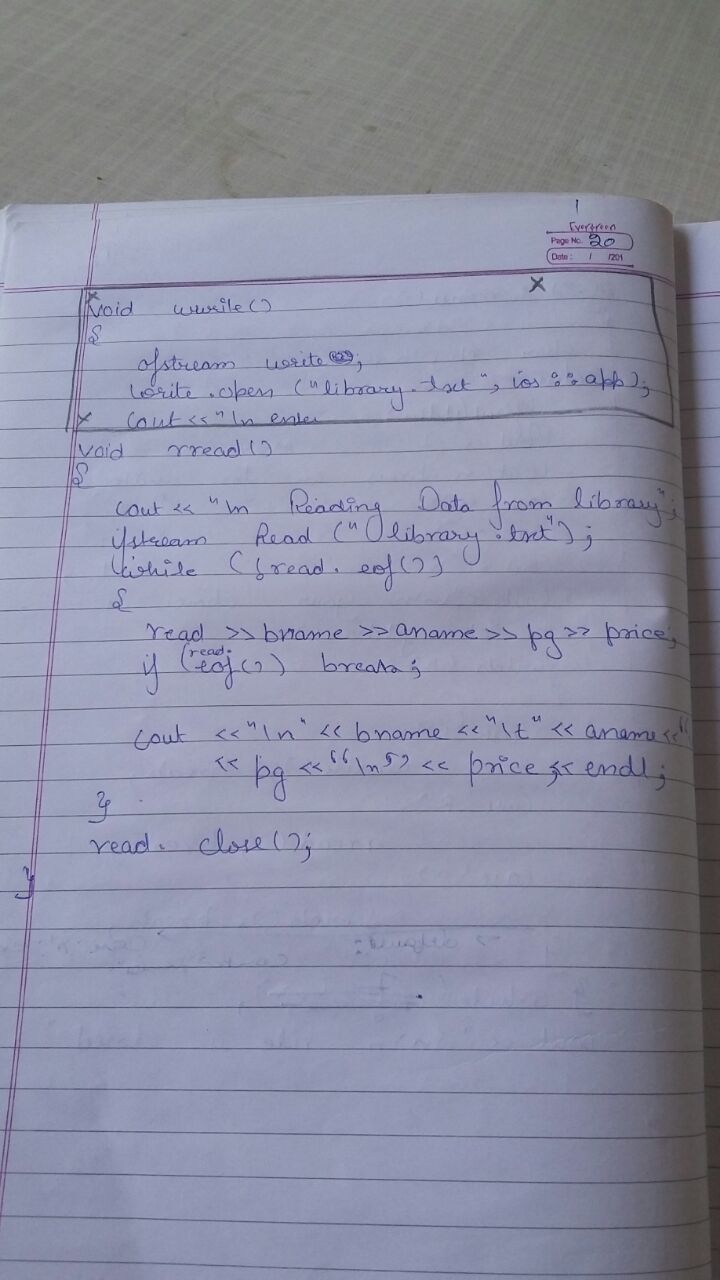 Evergreen
Page No. 20
Date : / /201
void wwrite()
{
ofstream write ;
write .open ("library.txt", ios::app);
cout <<"\n enter
void rread()
{
cout << "\n Reading Data from library";
ifstream Read ("library.txt");
while (!read. eof())
{
read >> bname >> aname >> pg >> price;
if (read. eof()) break;
cout <<"\n" << bname <<"\t" << aname <<"
<< pg <<"\n" << price << endl;
}
read. close();
}